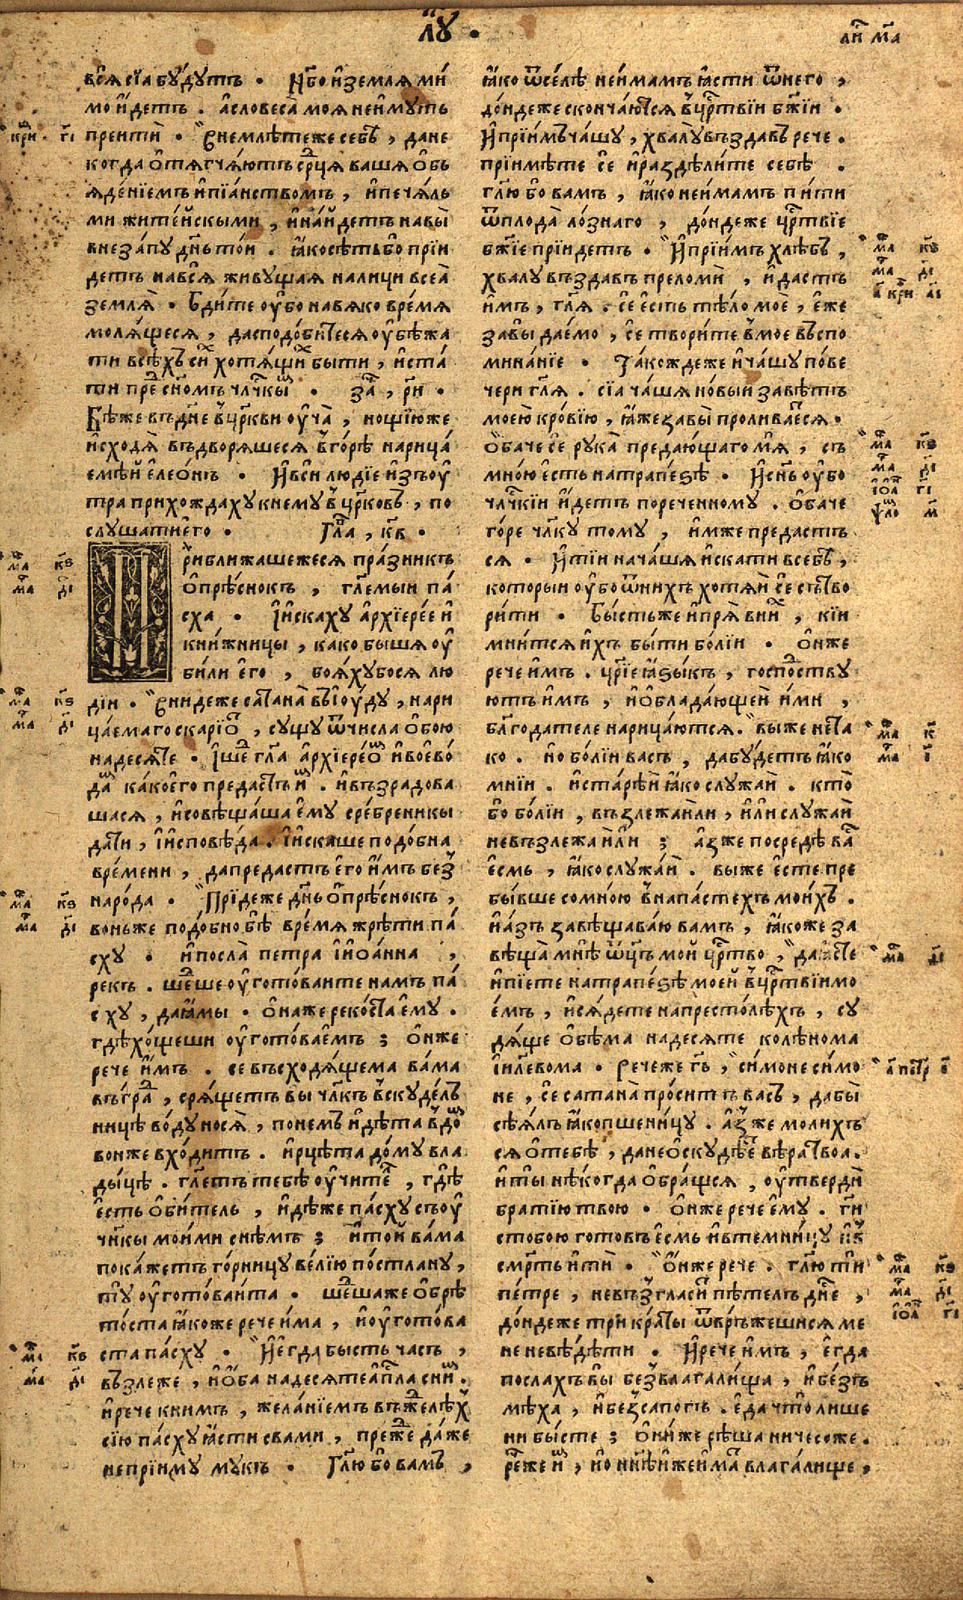 лꙋ .
вся сїа бꙋ́дꙋтъ . Нбо и҆земля ми
мо и҆детъ . а҆словеса̀ моя неи҆мꙋть
преитѝ . Внемлѣте же себѣ , дане
когда ѡ҆тягчаютъ срⷣца ваша ѡ҆бь
яде́нїемъ и҆пїа́нствомъ , и҆печа́ль
ми жите́йскыми , и҆на́йдетъ на вы̀
внеза́пꙋ дн҃ь то́и . ꙗ҆́ко сѣть бо прїи
детъ на вся̀ живꙋщая на лици всеа̀
земля̀ . Бди́те ᲂу҆̀бо на всяко вре́мя
моля́щеся , да сподо́битеся ᲂу҆бѣжа
ти всѣхъ си́хъ хотя́щихъ бы́ти , и҆ста́
ти преⷣ сн҃омъ чл҃чкыⷨ . заⷱ , ри .
Бѣ же въ дн҃е в цр҃кви ᲂу҆ча̀ , нощїю же
и҆сходя̀ въдворяшеся в го́рѣ нарица́
емѣй є҆лео́нъ . И҆ вси лю́дїе и҆зъ ᲂу҆́
тра прихождахꙋ к немꙋ в цр҃ковь , по
слꙋшати є҆го . Глⷡа , кв .
Приближашеся пра́зникъ
ѡ҆прѣснокъ , гл҃емый па́
сха . И҆ и҆скахꙋ а҆рхїере́е и҆
кни́жницы , како быша ᲂу҆
били є҆го , боя́хꙋ бося лю
дїи . Вниде же сатана̀ въ і҆ю́дꙋ , нари
ца́емаго скарїѡⷮ , сꙋща ѿ числа ѡ҆бою
надесяте . И҆ шеⷣ гл҃а а҆рхїере́ѡⷨ и҆ воево́
даⷨ како є҆го предастъ и҆ⷨ . и҆ възрадова
шася , и҆ совѣща́ша є҆мꙋ сре́бреникы
да́ти , и҆ и҆сповѣ́да . и҆ и҆скаше подо́бна
вре́мени , да предастъ є҆го и҆мъ беⷥ
наро́да . Прїиде же дн҃ь ѡ҆прѣснокъ ,
во ньже подо́бно бѣ̀ вре́мя жрѣти па́
схꙋ . и҆ посла̀ петра и҆ і҆ѡа́нна ,
рекъ . шеⷣше ᲂу҆гото́ванте намъ па́
схꙋ , да ꙗ҆мы . ѡ҆на же реко́ста є҆мꙋ .
гдѣ хо́щеши ᲂу҆гото́ваемъ ; ѡ҆н же
рече и҆мъ . се въсходя́щема ва́ма
въ граⷣ , сря́щетъ вы чл҃къ в скꙋде́ль
ницѣ во́дꙋ нося̀ , по немъ и҆дѣта в доⷨ
во ньже вхо́дитъ . и҆ рцѣта до́мꙋ вла
ды́цѣ . гл҃етъ тебѣ ᲂу҆чителⷧ , гдѣ̀
є҆сть ѡ҆би́тель , и҆дѣже па́схꙋ съ ᲂу҆
чн҃кы мои́ми снѣмъ ; и҆ то́й ва́ма
покажетъ го́рницꙋ ве́лїю по́стланꙋ ,
тꙋ ᲂу҆гото́ванта . шеⷣша же ѡ҆брѣ
то́ста ꙗ҆́коже рече и́ма , и҆ ᲂу҆гото́ва
ста па́схꙋ . И҆ є҆гда бысть часъ ,
възлеже , и҆ ѡ҆ба надесяте а҆пⷭ҇ла с ниⷨ .
и҆ рече к ни́мъ , жела́нїемъ въжделѣⷯ
сїю па́схꙋ ꙗ҆́сти с ва́ми , преⷤⷣ да́же
не прїимꙋ мꙋкъ . Гл҃ю бо ва́мъ ,
ꙗ҆́ко ѿселѣ не и҆мамъ ꙗ҆сти ѿ него ,
до́ндеже скончаютъся в црⷭ҇твїи бж҃їи .
И҆ прїи́мъ ча́шꙋ , хвалꙋ въздавъ рече .
прїимѣте сѐ и҆ раздѣли́те себѣ .
гл҃ю бо вамъ , ꙗ҆́ко не и҆мамъ пи́ти
ѿ плода ло́знаго , до́ндеже црⷭ҇твїе
бж҃їе прїи́детъ . И҆ прїимъ хлѣбъ ,
хвалꙋ въздавъ преломѝ , и҆ дастъ
и҆́мъ , гл҃я . сѐ є҆сть тѣло мое , є҆́же
за вы дае́мо , сѐ твори́те в мое въспо
мина́нїе . Та́кожде же и҆ ча́шꙋ по ве
чери гл҃я . сїа ча́ша но́вый завѣтъ
моею кро́вїю , ꙗ҆́же за вы̀ проливаеся .
Ѡ҆ба́че се рꙋка̀ предающаго мя̀ , съ
мно́ю є҆сть на трапе́зѣ . И҆ сн҃ъ ᲂу҆бо
чл҃чкїи и҆детъ по реченномꙋ . ѡ҆ба́че
го́ре чл҃кꙋ томꙋ , и҆мже предастъ
ся . И҆ тїи начаша и҆скати в себѣ ,
которыи ᲂу҆бо ѿ ни́хъ хотяй се сътво
ри́ти . Бысть же и҆ пря̀ в ниⷯ , кїи
мни́тся и҆хъ бы́ти бо́лїи . ѡ҆н же
рече и҆мъ . црⷭ҇їе ꙗ҆зы́къ , госпоⷣствꙋ
ютъ и҆мъ , и҆ ѡ҆блада́ющеи и҆ми ,
благодателе нарица́ются . вы же не та
ко . но бо́лїи в васъ , да бꙋ́детъ ꙗ҆ко
мнїи . и҆ ста́рѣй ꙗ҆́ко слꙋжа́й . кто̀
бо бо́лїи , възлежа́й ли , и҆ли слꙋжа́й
не възлежа́й ли ; а҆́з же посредѣ ваⷭ
є҆смь , ꙗ҆́ко слꙋжа́й . вы же є҆сте пре
бы́вше со мною в напа́стехъ мои́хъ .
и҆ а́зъ завѣщаваю вамъ , ꙗ҆́коже за
вѣща̀ мнѣ ѿц҃ъ мой црⷭ҇тво , да ꙗ҆сте
и҆ пїете на трапе́зѣ моей в црⷭ҇твїи мо
е́мъ , и҆ ся́дете на престо́лѣхъ , сꙋ
дяще ѡ҆бѣма надесяте колѣ́нома
і҆и҃левома . Рече же гь҃ , си́моне си́мо
не , се сатана̀ про́ситъ васъ , да бы̀
сѣ́ялъ ꙗ҆ко пшени́цꙋ . а҆́з же молихъ
ся ѡ҆ тебѣ , да не ѡ҆скꙋдѣе вѣра твоа .
и҆ ты̀ нѣкогда ѡ҆бра́щся , ᲂу҆твердѝ
бра́тїю твою . ѡ҆н же рече є҆мꙋ . гⷭ҇и
с тобо́ю гото́въ є҆смь и҆ в темни́цꙋ и҆ в
смрⷮть и҆тѝ . ѡ҆́н же рече . гл҃ю ти
пе́тре , не възгласи́ пѣтелъ дне́ⷭ ,
до́ндеже три кра́ты ѿвръ́жешися ме
не не вѣдѣти . И҆ рече и҆́мъ , є҆гда
послахъ вы̀ без влага́лища , и҆ без
мѣха , и҆ без сапо́гъ . є҆да что̀ лише
ни бы́сте ; ѡ҆ни́ же рѣша ничесо́же .
рече же и҆ⷨ , но нн҃ѣ и҆́же и҆́мать влага́лище ,